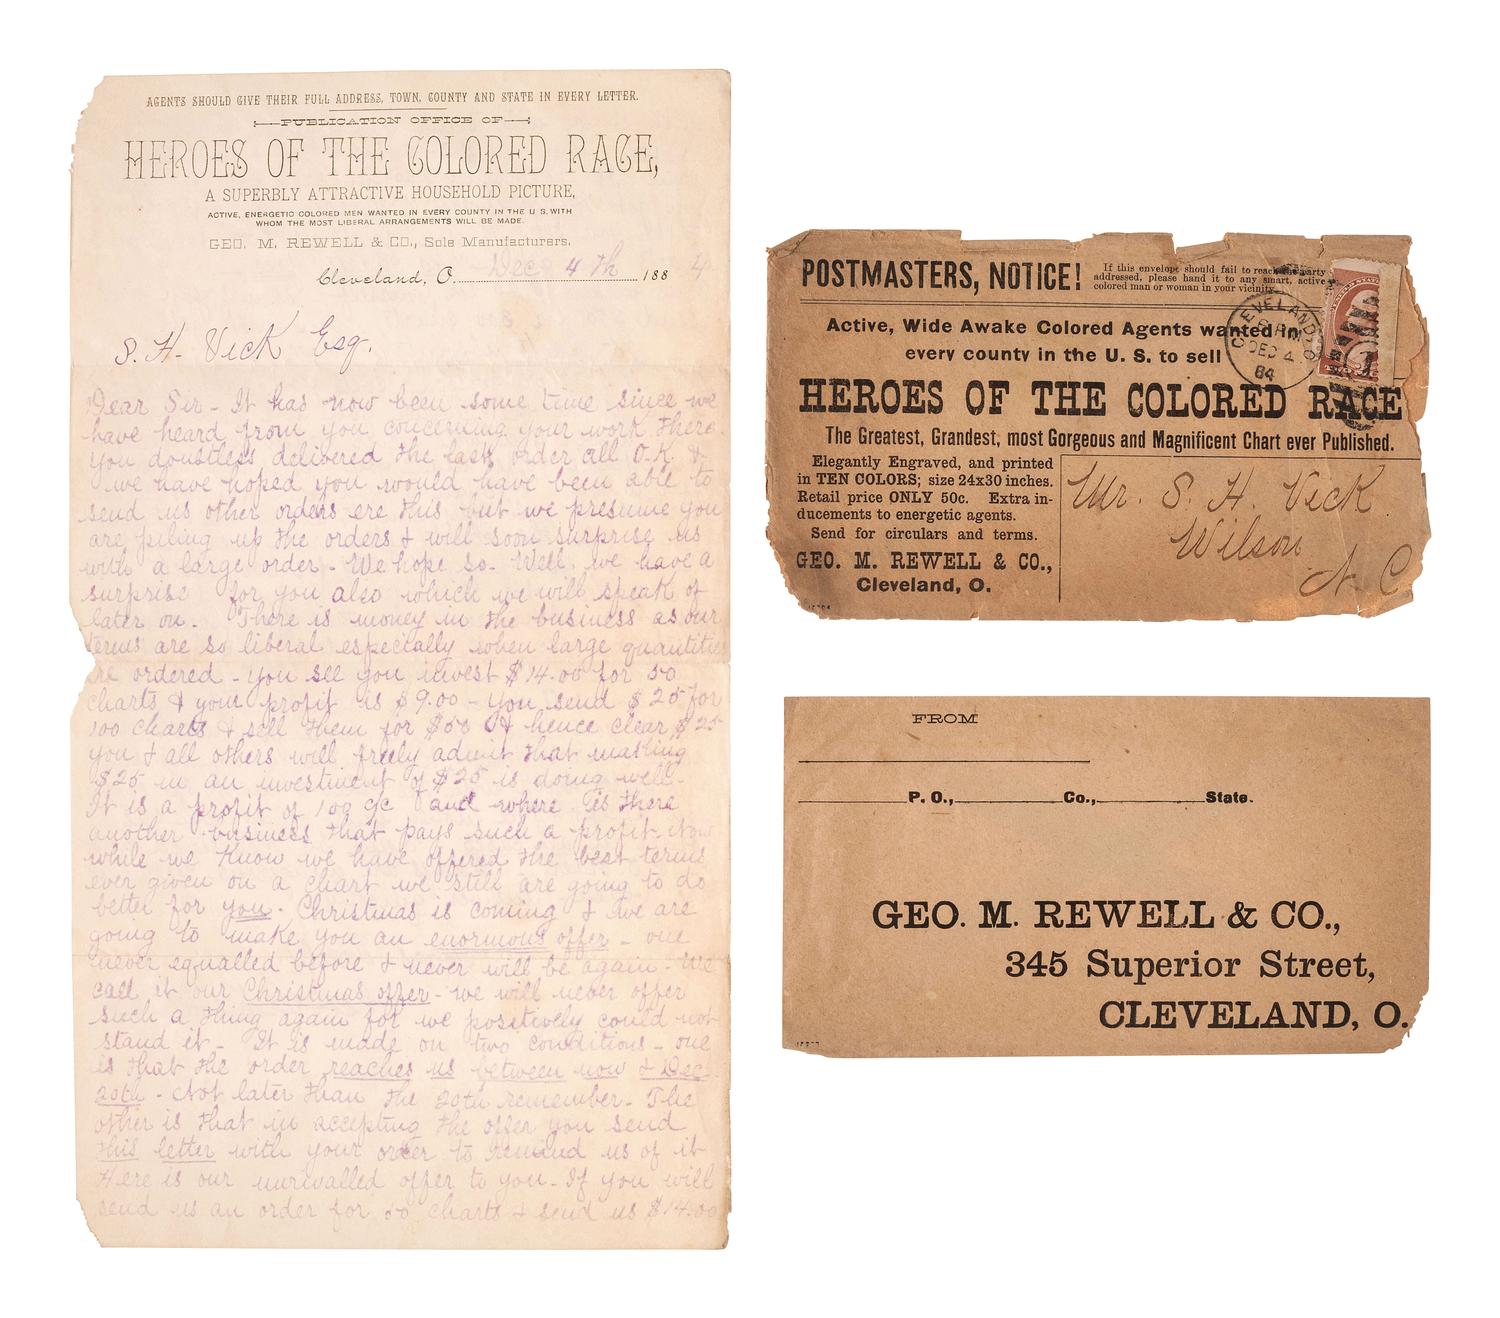 AGENTS SHOULD GIVE THEIR FULL ADDRESS, TOWN, COUNTY AND STATE IN EVERY LETTER.
PUBLICATION OFFICE OF
HEROES OF THE COLORED RACE,
A SUPERBLY ATTRACTIVE HOUSEHOLD PICTURE,
ACTIVE, ENERGETIC COLORED MEN WANTED IN EVERY COUNTY IN THE U S. WITH
WHOM THE MOST LIBERAL ARRANGEMENTS WILL BE MADE.
GEO. M. REWELL & CO., Sole Manufacturers,
Cleveland, O. Dec 4th 1884
S. H. Vick Esq.
Dear Sir - It has now been some time since we
have heard from you concerning your work there.
You doubtless delivered the last order all O.K &
we have hoped you would have been able to
send us other orders ere this but we presume you
are piling up the orders & will soon surprise us
with a large order - We hope so. Well, we have a
surprise for you also which we will speak of
later on. There is money in the business as our
terms are so liberal especially when large quantities
are ordered - You see you invest $14.00 for 50
charts & your profit is $9.00 - You send $25 for
100 charts & sell them for $50 & hence clear $25
you & all others will freely admit that making
$25 in an investment of $25 is doing well.
It is a profit of 100 % and where is there
another business that pays such a profit. Now
while we know we have offered the best terms
ever given on a chart we still are going to do
better for you. Christmas is coming & we are
going to make you an enormous offer - one
never equalled before & never will be again. We
call it our Christmas offer - we will never offer
such a thing again for we positively could not
stand it. It is made on two conditions - one
is that the order reaches us between now & Dec
20th - Not later than the 20th remember. The
other is that in accepting the offer you send
this letter with your order to remind us of it
Here is our unrivalled offer to you - If you will
send us an order for 50 charts & send us $14.00
POSTMASTERS, NOTICE!
If this envelope should fail to reach the party
addressed, please hand it to any smart, active
colored man or woman in your vicinity.
Active, Wide Awake Colored Agents wanted in
every county in the U. S. to sell
CLEVELAND, O.
DEC 4
84
HEROES OF THE COLORED RACE
The Greatest, Grandest, most Gorgeous and Magnificent Chart ever Published.
Elegantly Engraved, and printed
in TEN COLORS; size 24x30 inches.
Retail price ONLY 50c. Extra in-
ducements to energetic agents.
Send for circulars and terms.
GEO. M. REWELL & CO.,
Cleveland, O.
Mr. S. H. Vick
Wilson
N. C
FROM
P. O., Co., State.
GEO. M. REWELL & CO.,
345 Superior Street,
CLEVELAND, O.